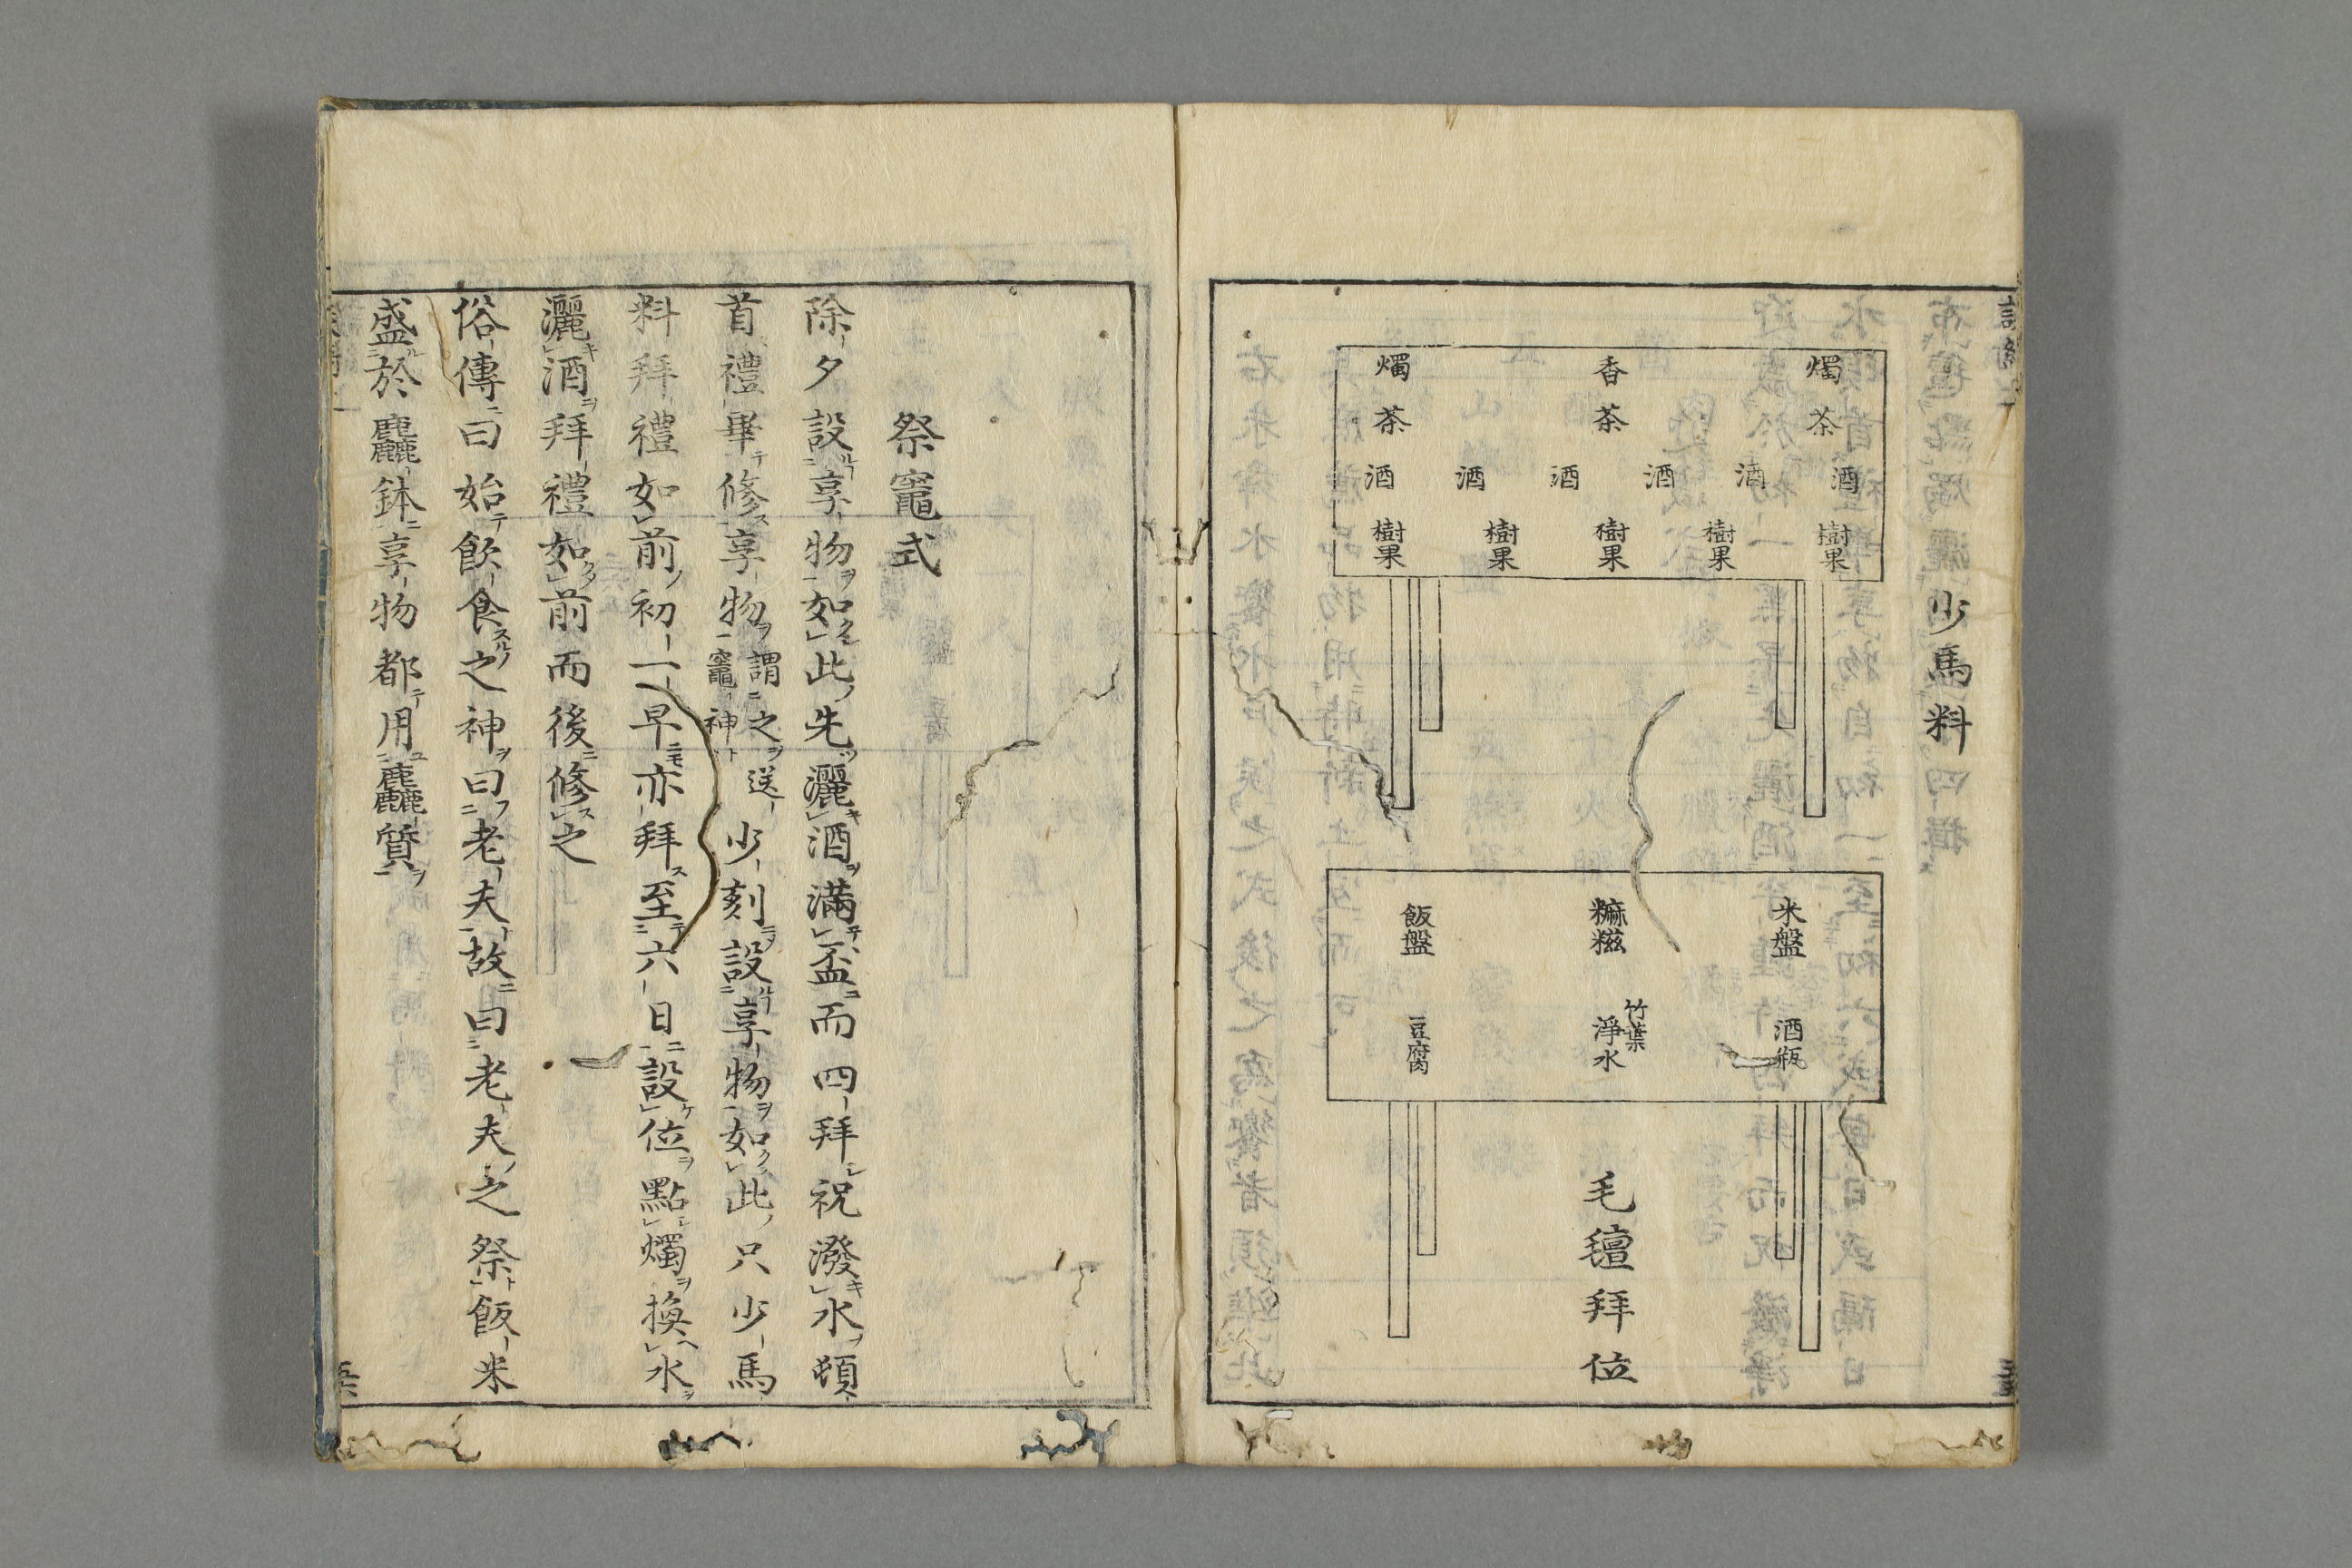 少馬料
燭 香 燭
茶 茶 茶
酒 酒 酒 酒 酒 酒
樹果 樹果 樹果 樹果 樹果
米盤 糍 飯盤
酒瓶 竹葉 淨水 豆腐
毛氊拜位
祭竈式
除夕設享物如此先灑酒滿盃而四拜祝潑水頓
首禮畢修享物謂之送竈神少刻設享物如此只少馬
料拜禮如前初一早亦拜至六日設位點燭換水
灑酒拜禮如前而後修之
俗傳曰始飲食之神曰老夫故曰老夫之祭飯米
盛於麤鉢享物都用麤質